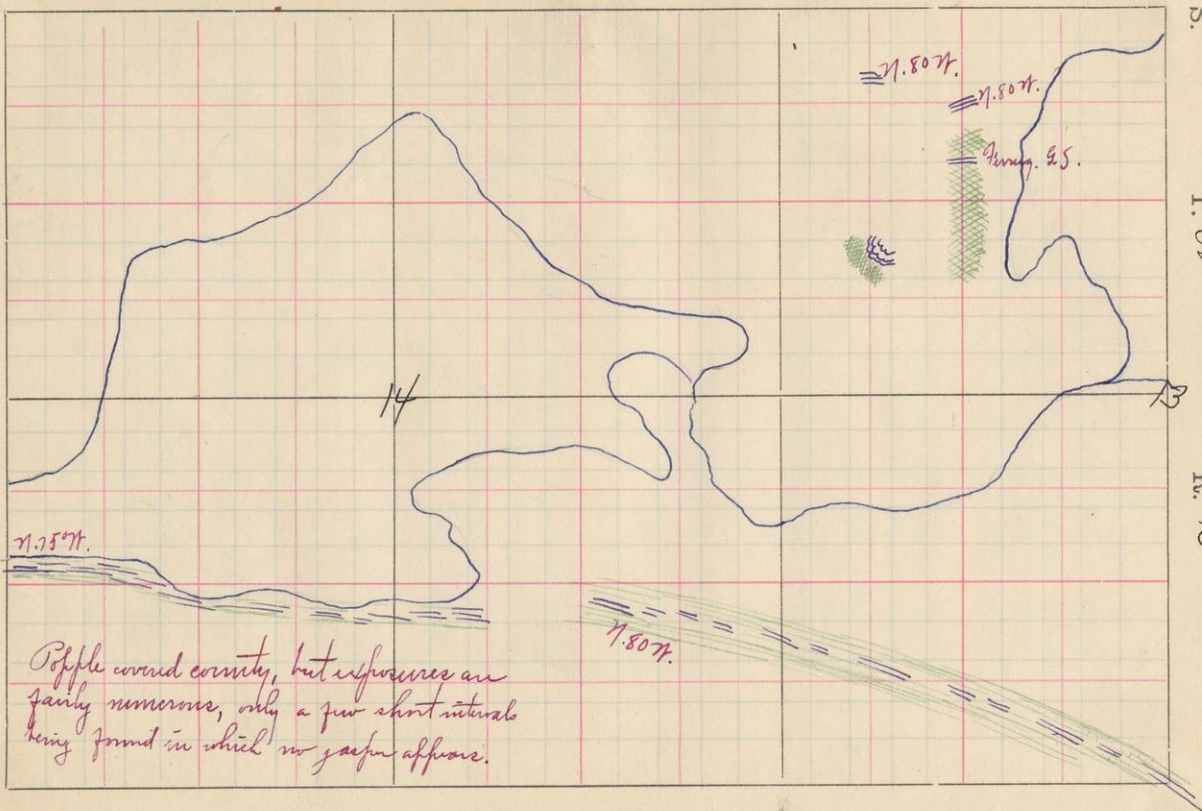 S.
T.
R.
N.80W.
N.80W.
Ferrug. G.S.
14
13
N.75°W.
N.80W.
Popple covered country, but exposures are
fairly numerous, only a few short intervals
being found in which no jasper appears.